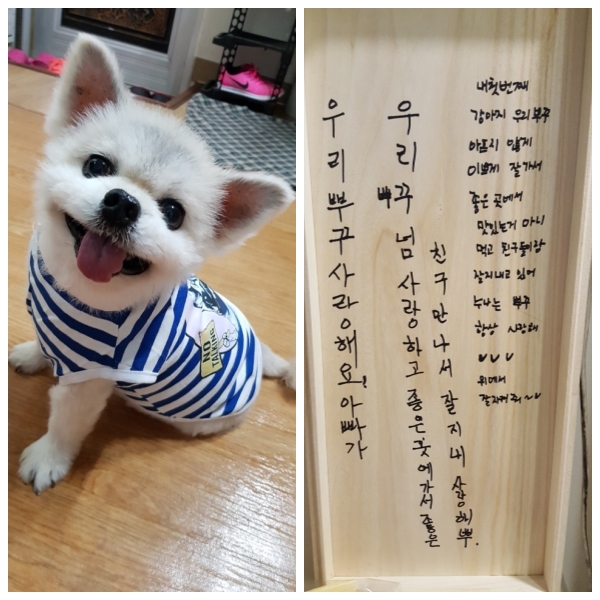 NO
TALKING
우리뿌꾸사랑해요! 아빠가
우리뿌꾸 넘 사랑하고 좋은곳에가서 좋은
친구만나서 잘지내 사랑해뿌.
내첫번째
강아지 우리뿌꾸
아프지 않게
이쁘게 잘가서
좋은 곳에서
맛있는거 마니
먹고 친구들이랑
잘지내고 있어
누나는 뿌꾸
항상 사랑해
♥♥♥
위에서
잘지켜줘~~